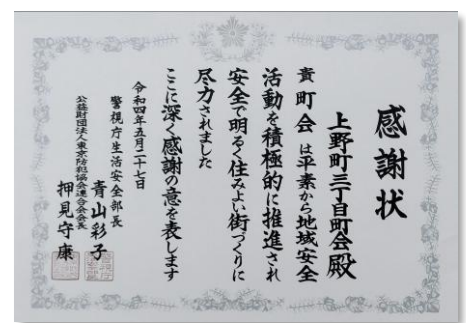 感謝状
上野町三丁目町会殿
貴町会は平素から地域安全
活動を積極的に推進され
安全で明るく住みよい街づくりに
尽力されました
ここに深く感謝の意を表します
令和四年五月二十七日
警視庁生活安全部長
青山彩子
公益財団法人東京防犯協会連合会会長
押見守康